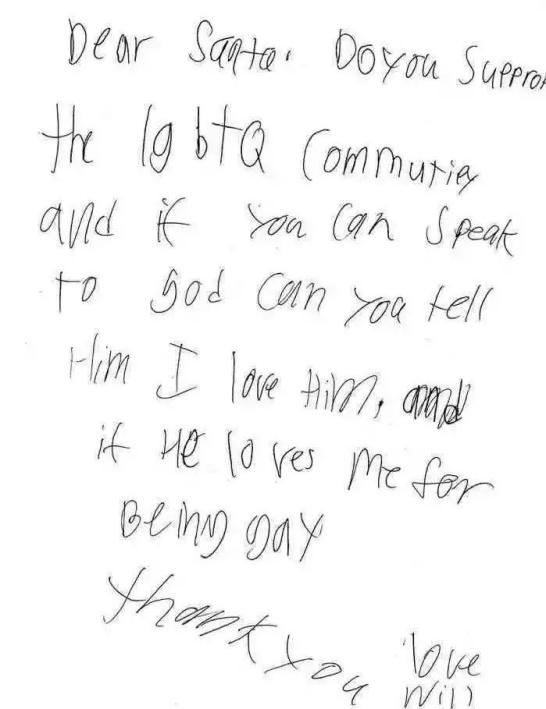 Dear Santa. Do you Suppro
the lgbtQ Commutiey
and if you can speak
to god can you tell
Him I love Him, and
if He loves me for
Being gay
Thank you love
Will